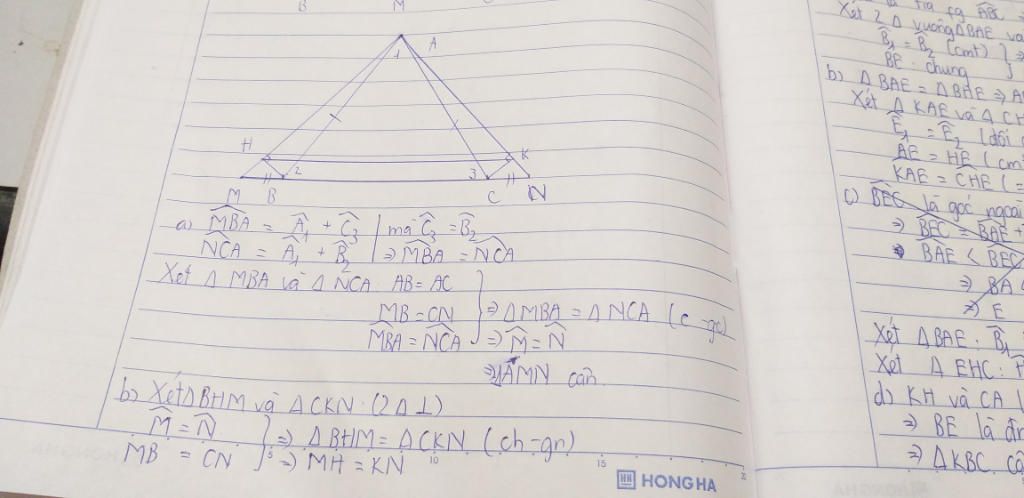 B M
A
1
H K
2 3
M B C N
a) MBA = A1 + C3 | mà C3 = B2
NCA = A1 + B2 | => MBA = NCA
Xét Δ MBA và Δ NCA AB = AC
MB = CN => Δ MBA = Δ NCA (c-gc)
MBA = NCA => M = N
=> ΔAMN cân
b) Xét Δ BHM và Δ CKN (2 Δ ⊥)
M = N => Δ BHM = Δ CKN (ch-gn)
MB = CN => MH = KN
5 10 15
HH HONG HA
Xét 2 Δ vuông Δ BAE và
B1 = B2 (cmt) } =>
BE chung
b) Δ BAE = Δ BHE =>
Xét Δ KAE và Δ CH
E1 = E2 (đối
AE = HE (cm
KAE = CHE (=
c) BEC là góc ngoài
=> BEC = BAE +
BAE < BEC
=> BA
=> E
Xét Δ BAE: B1
Xét Δ EHC:
d) KH và CA
=> BE là
=> Δ KBC